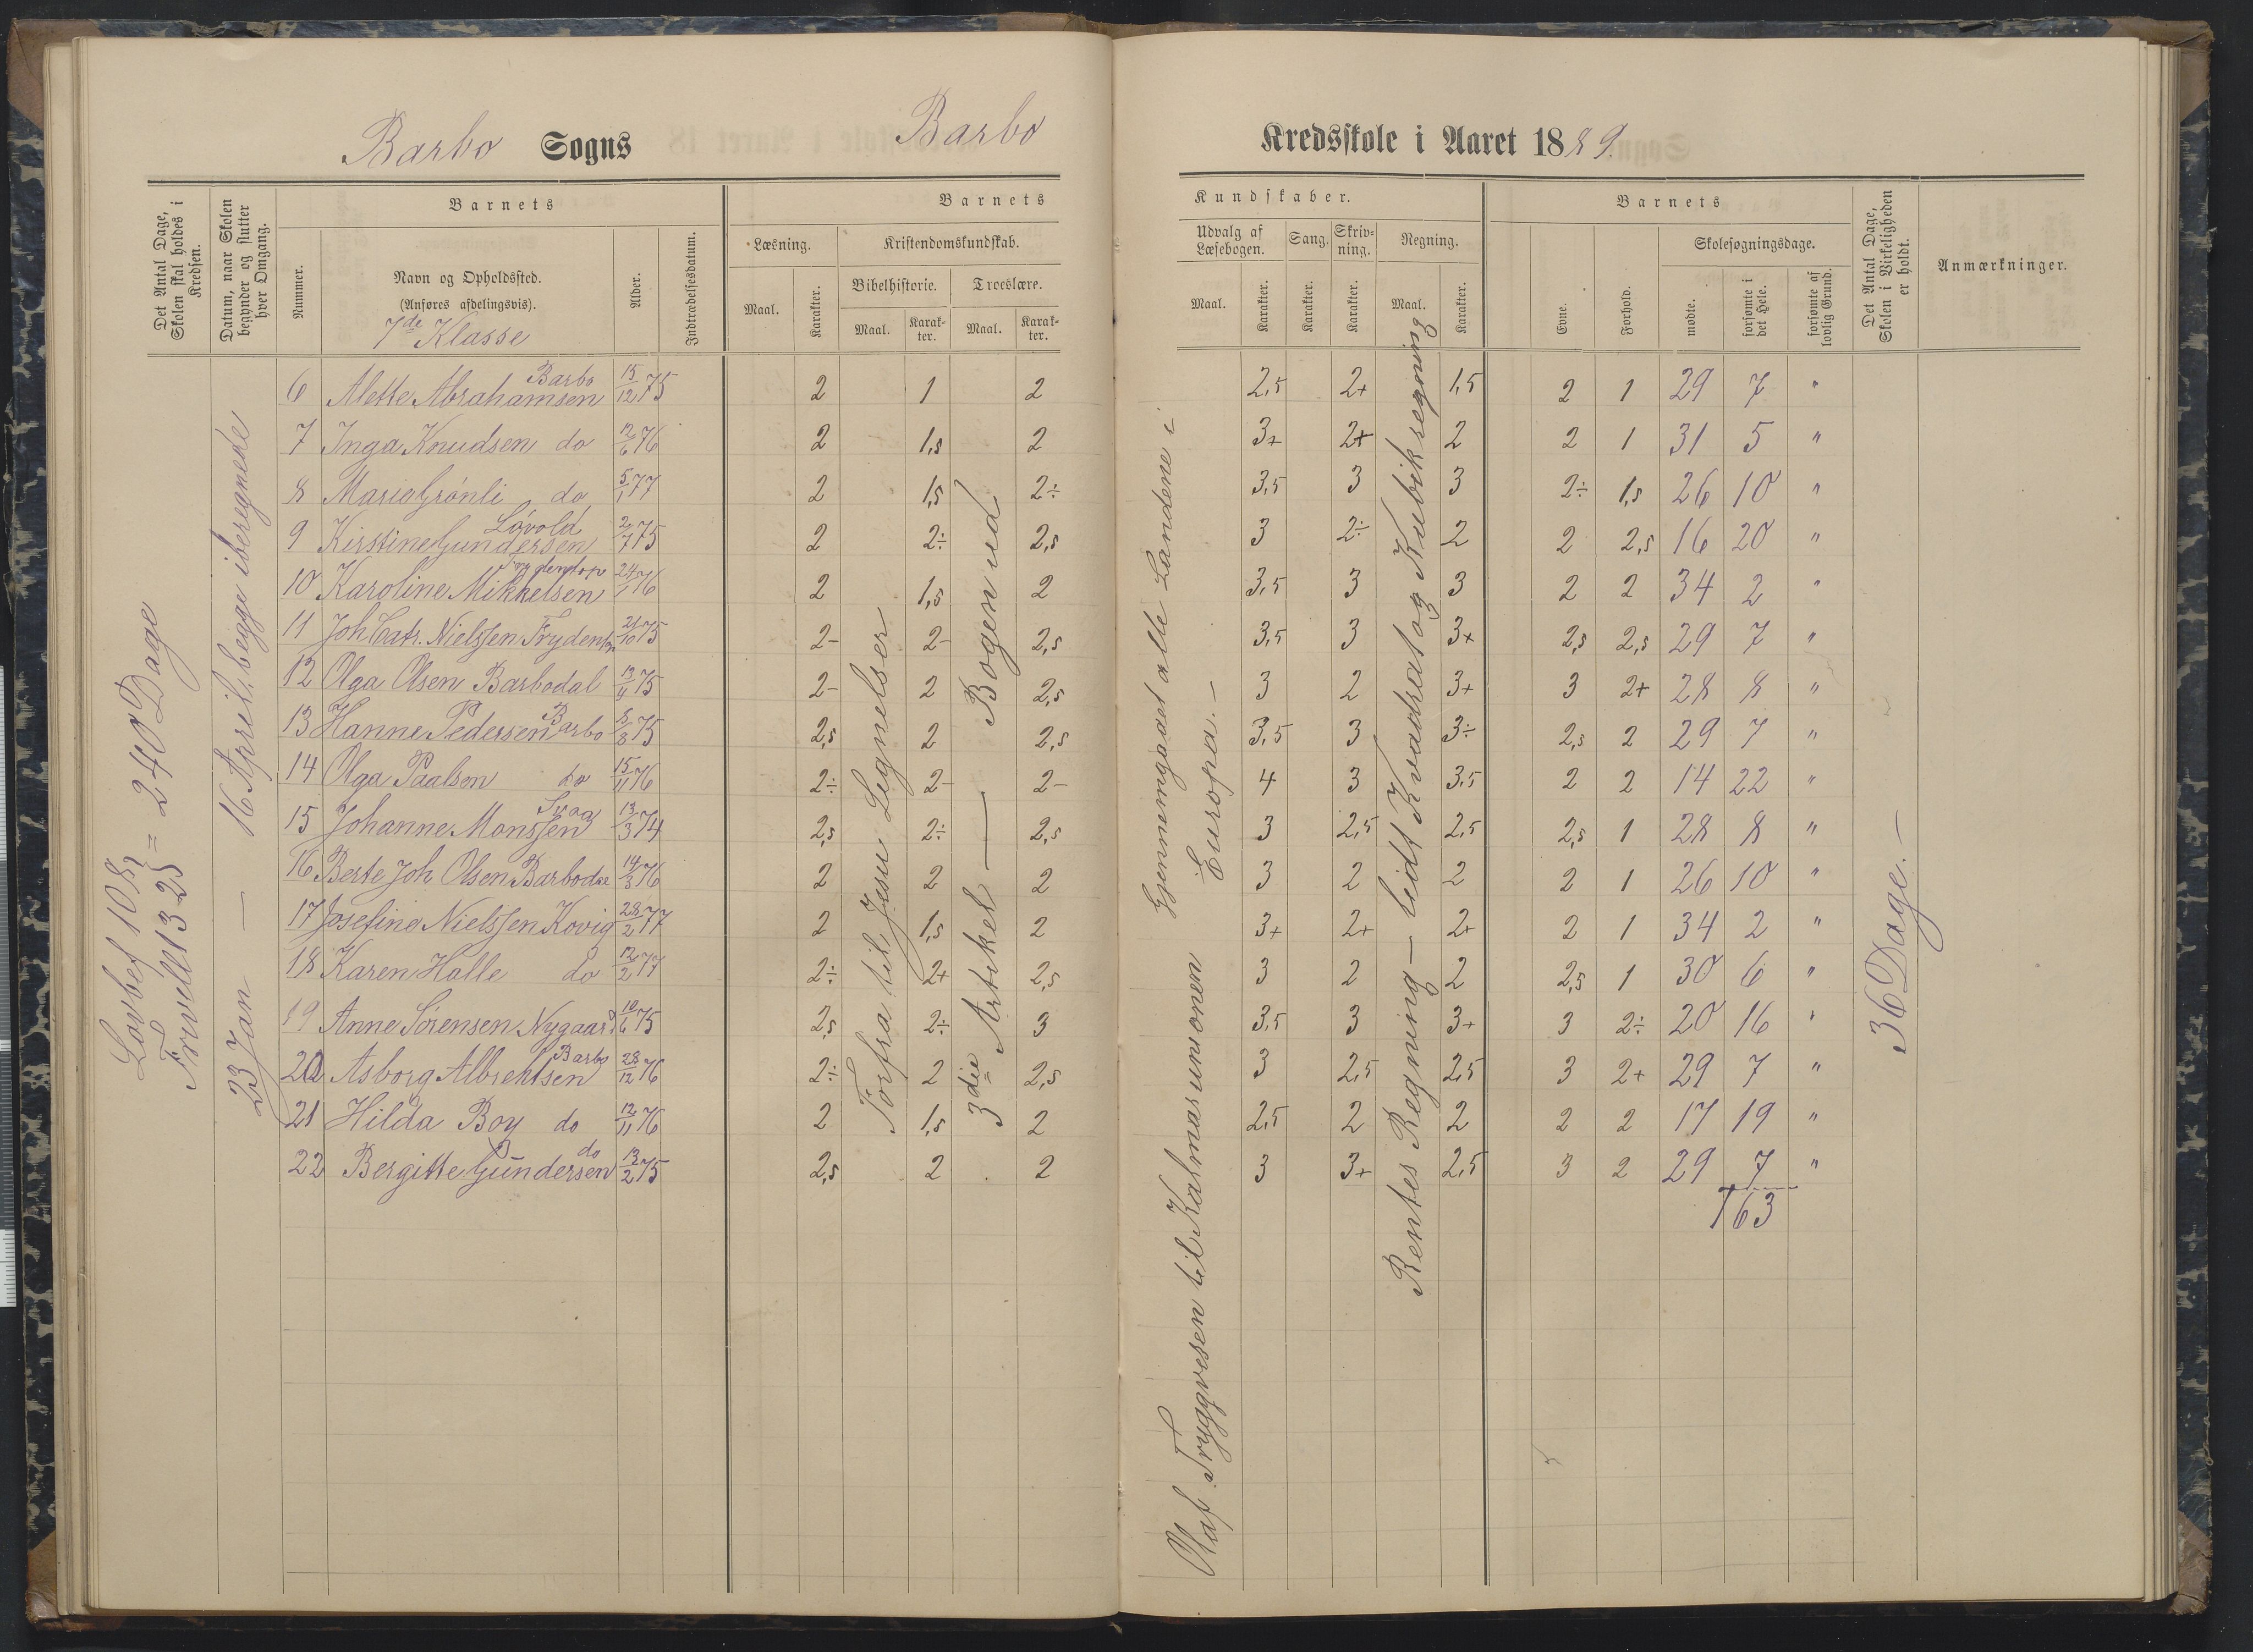 Barbo Sogns Barbo Kredsskole i Aaret 1889.
Det Antal Dage, Skolen skal holdes i Kredsen.
Datum, naar Skolen begynder og slutter hver Omgang.
Barnets
Nummer.
Navn og Opholdssted.
(Anføres afdelingsvis).
7de Klasse
Alder.
Indtrædelsesdatum.
Barnets Kundskaber.
Læsning.
Maal. Karakter.
Kristendomskundskab.
Bibelhistorie. Troeslære.
Maal. Karakter. Maal. Karakter.
Udvalg af Læsebogen.
Maal. Karakter.
Sang. Karakter.
Skrivning. Karakter.
Regning.
Maal. Karakter.
Barnets
Evne. Forhold.
Skolesøgningsdage.
mødte. forsømte i det Hele. forsømte af lovlig Grund.
Det Antal Dage, Skolen i Virkeligheden er holdt.
Anmærkninger.
Lovbef 108
Frivillt 132 = 240 Dage
23 Jan — 16 April, begge iberegnede
6 Alette Abrahamsen Barbo 15/12 75 2 1 2 2,5 2+ 1,5 2 1 29 7 "
7 Inga Knudsen do 12/6 76 2 1,5 2 3+ 2+ 2 2 1 31 5 "
8 Marie Grønli do 5/1 77 2 1,5 2÷ 3,5 3 3 2÷ 1,5 26 10 "
9 Kirstine Gundersen Løvold 2/7 75 2 2÷ 2,5 3 2÷ 2 2 2,5 16 20 "
10 Karoline Mikkelsen 24/1 76 2 1,5 2 3,5 3 3 2 2 34 2 "
11 Joh Catr. Nielssen 21/10 75 2- 2- 2,5 3,5 3 3+ 2,5 2,5 29 7 "
12 Olga Olsen Barbodal 13/9 75 2- 2 2,5 3 2 3+ 3 2+ 28 8 "
13 Hanne Pedersen Barbo 8/8 75 2,5 2 2,5 3,5 3 3÷ 2,5 2 29 7 "
14 Olga Paalsen do 15/11 76 2÷ 2- 2- 4 3 3,5 2 2 14 22 "
15 Johanne Monssen 13/3 74 2,5 2÷ 2,5 3 2,5 2,5 2,5 1 28 8 "
16 Berte Joh Olsen Barbodal 14/3 76 2 2 2 3 2 2 2 1 26 10 "
17 Josefine Nielssen Kovig 28/2 77 2 1,5 2 3+ 2+ 2+ 2 1 34 2 "
18 Karen Halle do 12/2 77 2÷ 2+ 2,5 3 2 2 2,5 1 30 6 "
19 Anne Sørensen Nygaard 10/6 75 2,5 2÷ 3 3,5 3 3+ 3 2÷ 20 16 "
20 Asborg Albrektsen Barbo 28/12 76 2÷ 2 2,5 3 2,5 2,5 3 2+ 29 7 "
21 Hilda Boy do 12/11 76 2 1,5 2 2,5 2 2 2 2 17 19 "
22 Bergitte Gundersen do 13/2 75 2,5 2 2 3 3+ 2,5 3 2 29 7 "
163
Forfra til Jesu Lignelser
3die Artikel — Bogen ud
Olaf Tryggvesen til Kalmarunionen
Gjennemgaaet alle Landene i
Europa. —
Rentes Regning — lidt Kvadrat og Kubikregning
36 Dage. —